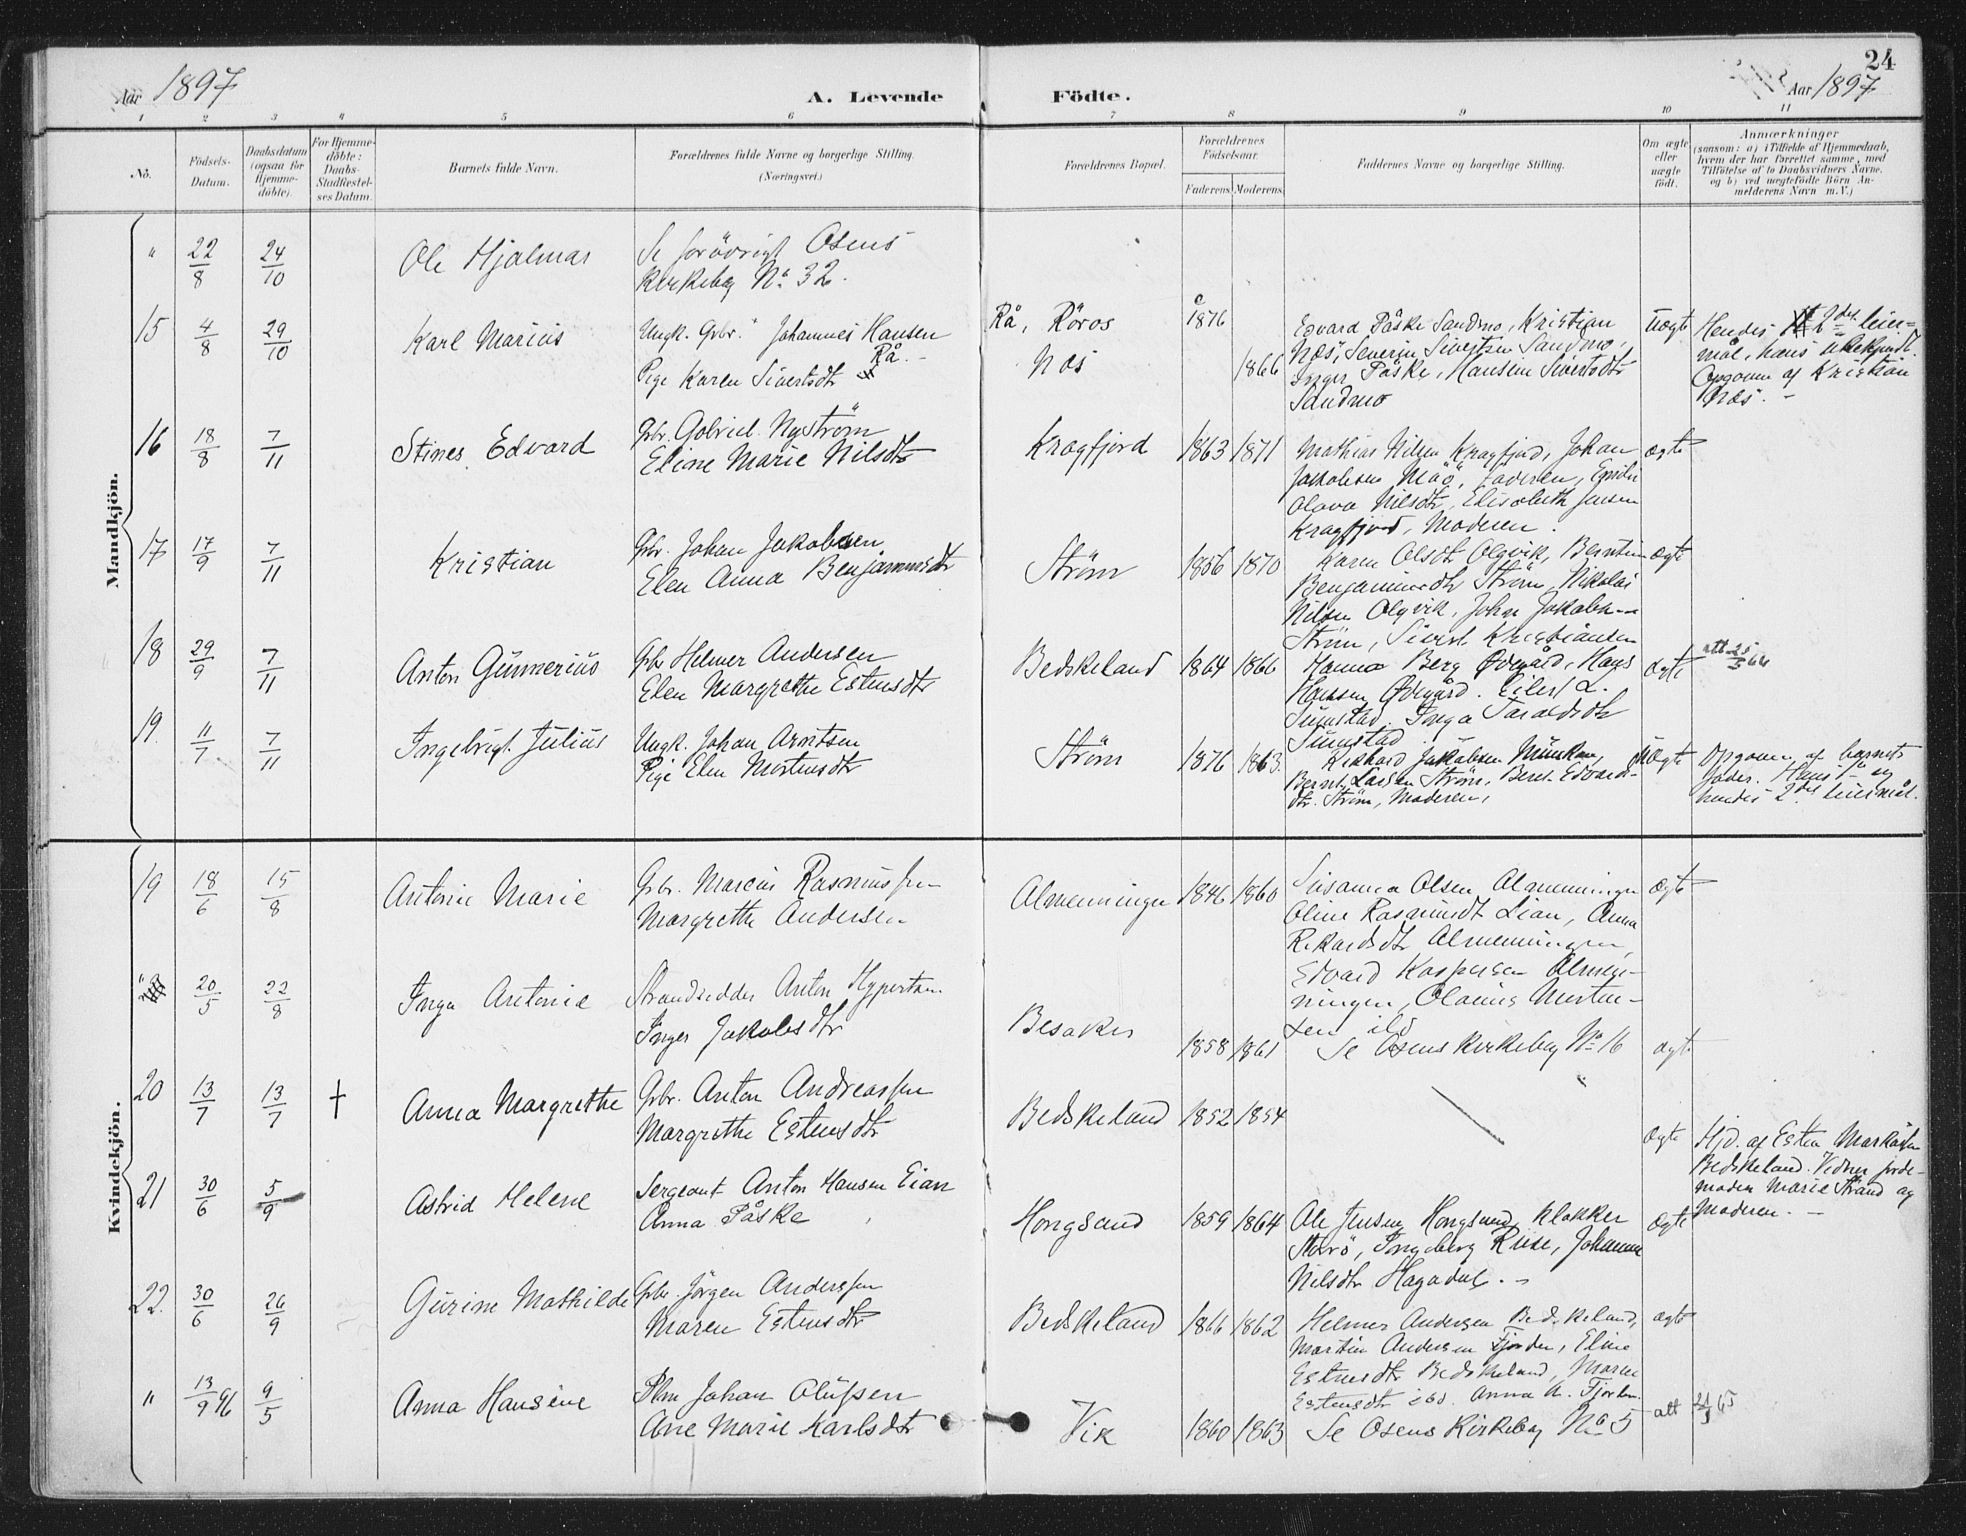 24
Aar 1897
A. Levende
Födte.
Aar 1897
1 2 3 4 5 6 7 8 9 10 11
No.
Födsels-
Datum.
Daabsdatum
(ogsaa for
Hjemme-
döbte).
For Hjemme-
döbte:
Daabs-
Stadfæstel-
ses Datum.
Barnets fulde Navn.
Forældrenes fulde Navne og borgerlige Stilling.
(Næringsvei.)
Forældrenes Bopæl.
Forældrenes
Födselsaar.
Faderens Moderens
Faddernes Navne og borgerlige Stilling.
Om ægte
eller
uægte
födt.
Anmærkninger
(saasom: a) i Tilfælde af Hjemmedaab,
hvem der har forrettet samme, med
Tilföielse af to Daabsvidners Navne.
og b) ved uægtefödte Börn An-
melderens Navn m. V.)
Mandkjön.
" 22/8 24/10 Ole Hjalmar
Se forövrigt Osens
Kirkebog No 32.
15 4/8 29/10 Karl Marius
Ungk. Gbr. Johannes Hansen
Rå.
Pige Karen Sivertsdtr
Rå, Röros
Næs
1876
1866
Edvard Påske Sandmo, Kristian
Næs, Severin Sivertsen Sandmo,
Inger Påske, Hansine Sivertsdtr
Sandmo
Uægte
Hendes 2det leier-
mål, hans
Opgoven af Kristian
Næs. -
16 18/8 7/11 Stines Edvard
Gbr. Gabriel Nyström
Eline Marie Nilsdtr
Kragfjord 1863 1871
Mathias Nilsen Kragfjord, Johan
Jakobsen, Faderen,
Olava Nilsdtr, Elisabeth Jensen
Kragfjord, Moderen.
ægte
17 17/9 7/11 Kristian
Gbr. Johan Jakobsen
Elen Anna Benjaminsdtr
Ström 1856 1870
Karen Olsdtr Olgvik, Berntine
Benjaminsdtr Ström, Nikolai
Nilsen Olgvik, Johan Jakobsen
Ström, Sivert Kristiansen
ægte
18 29/9 7/11 Anton Gunnerius
Gbr Helmer Andersen
Elen Margrethe Estensdtr
Bedskeland 1864 1866
Hanna Berg Ödegård, Hans
Hansen Ödegård. Eilert L.
Sumstad. Inga Taraldsdtr
Sumstad.
ægte
att 25/5 66
19. 11/7 7/11 Ingebrigt Julius
Ungk. Johan Arntsen
Pige Elen Mortensdtr
Ström 1876 1863.
Rikhard Jakobsen Munken,
Bernt Larsen Ström, Beret Edvards-
dtr. Ström, Moderen,
Uægte
Opgoven af barnets
fader. Hans 1ste og
hendes 2det leiermål.
Kvindekjön.
19 18/6 15/8 Antonie Marie
Gbr. Marius Rasmussen
Margrethe Andersen
Almenningen 1846 1860
Susanna Olsen Almenningen
Oline Rasmusdtr Lian, Anna
Rikardsdtr Almenningen,
Edvard Kaspersen Almen-
ningen, Olaus Morten-
sen ibd
ægte
" 20/5 22/8 Inga Antonie
Strandsidder Anton
Inger Jakobsdtr
Besaker
1858 1861
Se Osens Kirkebog No 16
ægte
20 13/7 13/7 † Anna Margrethe
Gbr. Anton Andreassen
Margrethe Estensdtr
Bedskeland 1852 1854
ægte
Hjd. af Esten Markussen
Bedskeland. Vidner jorde-
moder Marie Strand og
Moderen. -
21 30/6 5/9 Astrid Helene
Sergeant Anton Hansen Eian
Anna Påske
Hongsand 1859 1864
Ole Jensen Hongsand, Klokker
Storö, Ingeborg Riise, Johanna
Nilsdtr Hagadal. -
ægte
22. 30/6 26/9 Gurine Mathilde
Gbr. Jörgen Anderssen
Maren Estensdtr
Bedskeland 1866 1862
Helmer Andersen Bedskeland,
Martin Andersen Fjorden, Eline
Estensdtr Bedskeland, Maren
Estensdtr ibd. Anna A. Fjorden.
ægte
" 13/9 96 9/5 Anna Hansine
Plm Johan Olufsen
Ane Marie Karlsdtr
Vik 1860 1863
Se Osens Kirkebog No 5
att 65